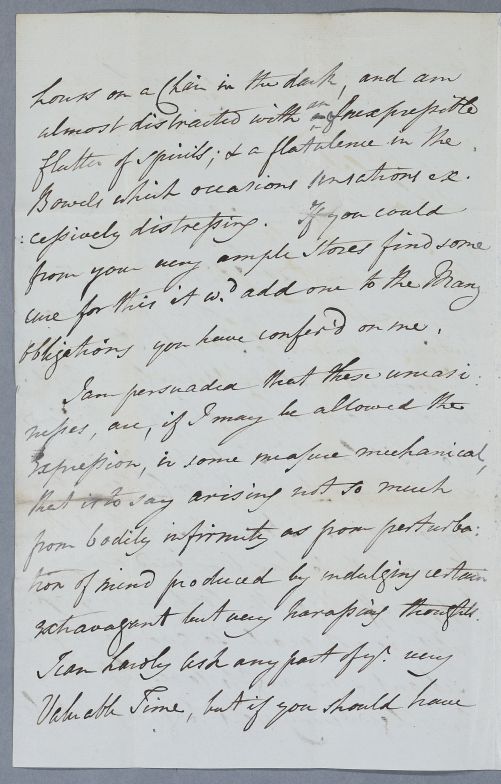 hours on a Chair in the dark, and am
almost distracted with an Inexpressible
flutter of spirits; & a flatulence in the
Bowels which occasions sensations ex:
:cessively distressing. If you could
from your very ample Stores find some
cure for this it wd. add one to the Many
obligations you have confer'd on me.
I am persuaded that these uneasi:
nesses, are, if I may be allowed the
Expression, in some measure mechanical,
that is to say arising not so much
from bodily infirmity as from perturba:
tion of mind produced by indulging certain
extravagant but very harassing thoughts.
I can hardly ask any part of yr. very
Valuable Time, but if you should have